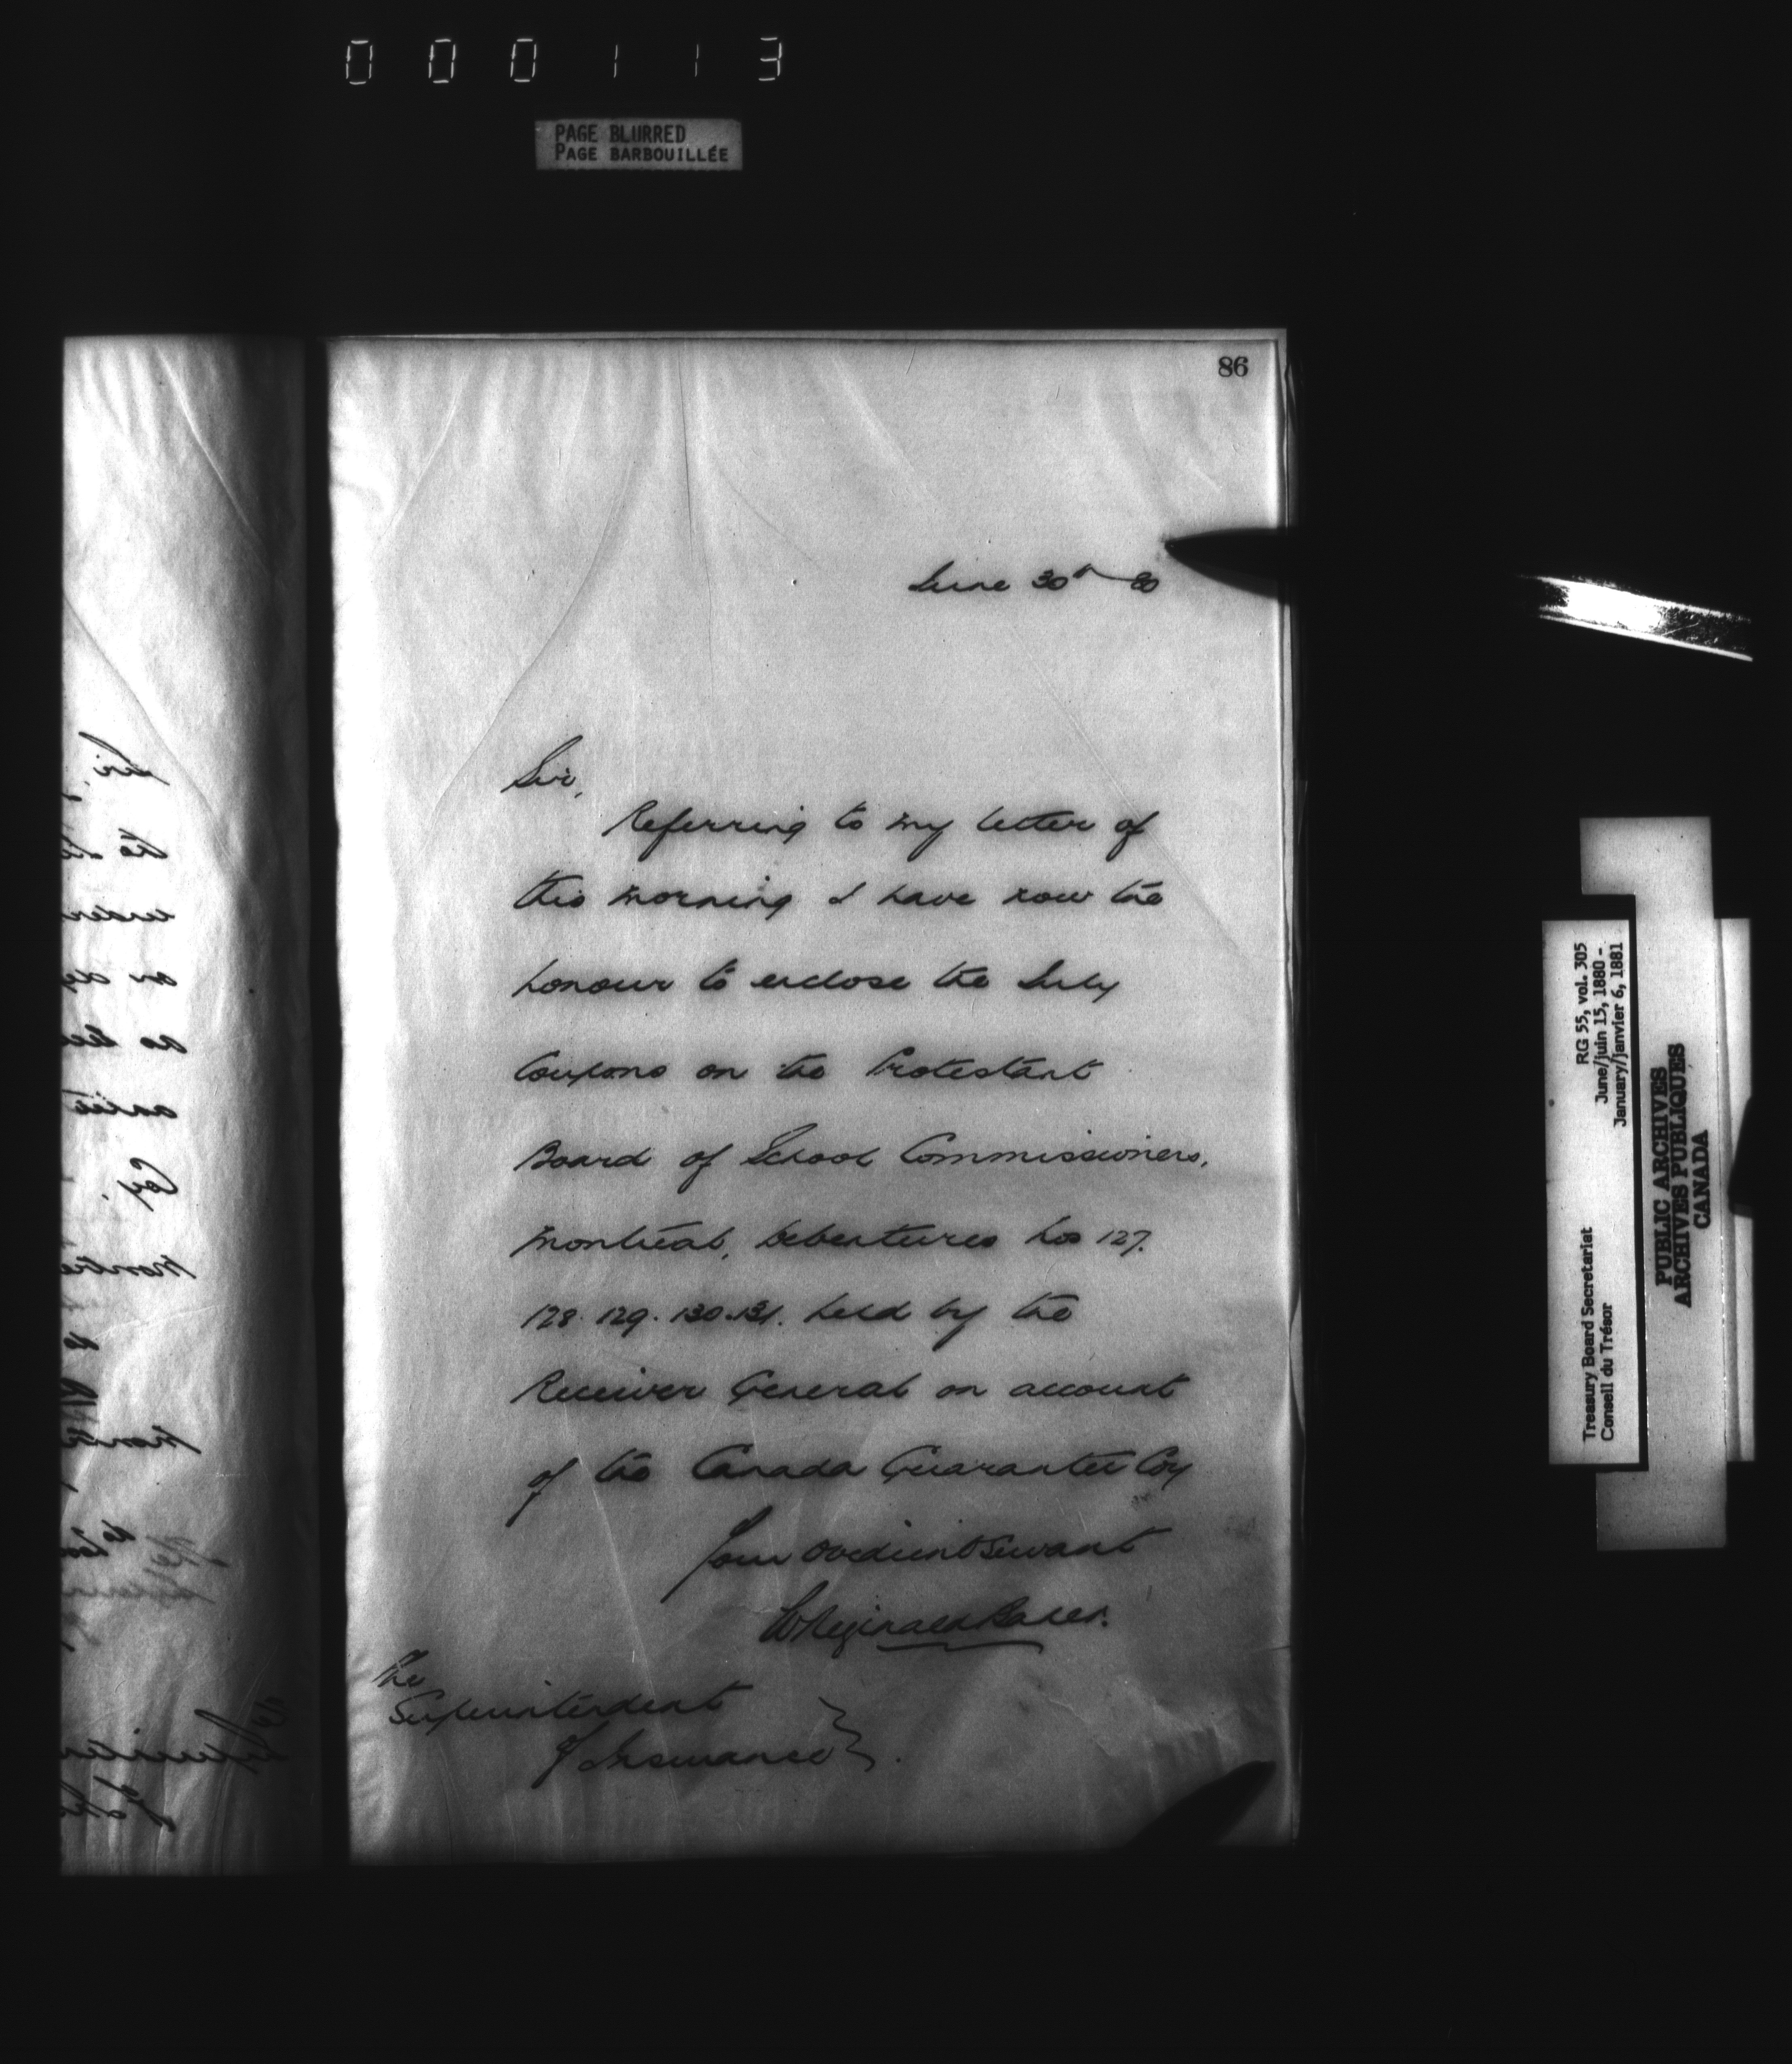 000113
PAGE BLURRED
PAGE BARBOUILLÉE
86
June 30th 80
Sir,
Referring to my letter of
this morning I have now the
honour to enclose the July
Coupons on the Protestant
Board of School Commissioners,
Montreal, Debentures Nos 127.
128. 129. 130. 131. held by the
Receiver General on account
of the Canada Guarantee Coy
Your obedient Servant
W Reginald Baker.
The
Superintendent
of Insurance
RG 55, vol. 305
June/juin 15, 1880 -
January/janvier 6, 1881
Treasury Board Secretariat
Conseil du Trésor
PUBLIC ARCHIVES
ARCHIVES PUBLIQUES
CANADA